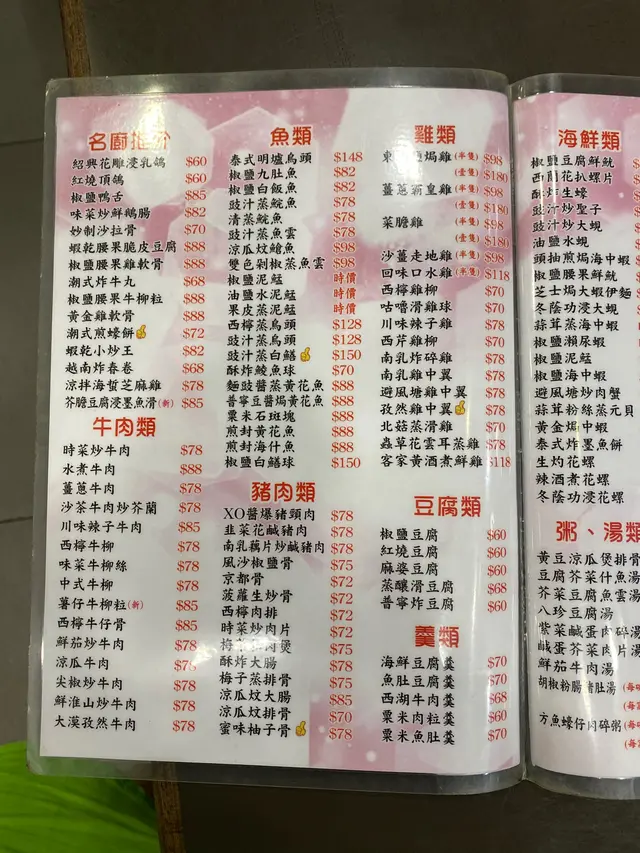 名廚推介
紹興花雕浸乳鴿 $60
紅燒頂鴿 $60
椒鹽鴨舌 $85
味菜炒鮮鵝腸 $82
妙制沙拉骨 $70
蝦乾腰果脆皮豆腐 $88
椒鹽腰果雞軟骨 $88
潮式炸牛丸 $68
椒鹽腰果牛柳粒 $88
黃金雞軟骨 $88
潮式煎蠔餅 $72
蝦乾小炒王 $82
越南炸春卷 $68
涼拌海蜇芝麻雞 $78
芥膽豆腐浸墨魚滑(新) $85
牛肉類
時菜炒牛肉 $78
水煮牛肉 $88
薑蔥牛肉 $78
沙茶牛肉炒芥蘭 $78
川味辣子牛肉 $85
西檸牛柳 $78
味菜牛柳絲 $78
中式牛柳 $78
薯仔牛柳粒(新) $85
西檸牛仔骨 $85
鮮茄炒牛肉 $78
涼瓜牛肉 $78
尖椒炒牛肉 $78
鮮淮山炒牛肉 $78
大漠孜然牛肉 $78
魚類
泰式明爐烏頭 $148
椒鹽九肚魚 $82
椒鹽白飯魚 $82
豉汁蒸鯇魚 $78
清蒸鯇魚 $78
豉汁蒸魚雲 $78
涼瓜炆鱠魚 $98
雙色剁椒蒸魚雲 $98
椒鹽泥鯭 時價
油鹽水泥鯭 時價
果皮蒸泥鯭 時價
西檸蒸烏頭 $128
豉汁蒸烏頭 $128
豉汁蒸白鱔 $150
酥炸鯪魚球 $70
麵豉醬蒸黃花魚 $88
普寧豆醬焗黃花魚 $88
粟米石斑塊 $88
煎封黃花魚 $88
煎封海什魚 $88
椒鹽白鱔球 $150
豬肉類
XO醬爆豬頸肉 $78
韭菜花鹹豬肉 $78
南乳藕片炒鹹豬肉 $78
風沙椒鹽骨 $75
京都骨 $72
菠蘿生炒骨 $72
西檸肉排 $72
時菜炒肉片 $72
煲 $75
酥炸大腸 $78
梅子蒸排骨 $75
涼瓜炆大腸 $85
涼瓜炆排骨 $70
蜜味柚子骨 $78
雞類
焗雞(半隻) $98
(壹隻) $180
薑蔥霸皇雞(半隻) $98
(壹隻) $180
菜膽雞(半隻) $98
(壹隻) $180
沙薑走地雞(半隻) $98
回味口水雞(半隻) $118
西檸雞柳 $70
咕嚕滑雞球 $70
川味辣子雞 $78
西芹雞柳 $70
南乳炸碎雞 $78
南乳雞中翼 $78
避風塘雞中翼 $78
孜然雞中翼 $78
北菇蒸滑雞 $70
蟲草花雲耳蒸雞 $78
客家黃酒煮鮮雞 $118
豆腐類
椒鹽豆腐 $60
紅燒豆腐 $60
麻婆豆腐 $60
蒸釀滑豆腐 $68
普寧炸豆腐 $60
羹類
海鮮豆腐羹 $70
魚肚豆腐羹 $70
西湖牛肉羹 $68
粟米肉粒羹 $60
粟米魚肚羹 $70
海鮮類
椒鹽豆腐鮮魷
西蘭花扒螺片
酥炸生蠔
豉汁炒聖子
豉汁炒大蜆
油鹽水蜆
頭抽煎焗海中蝦
椒鹽腰果鮮魷
芝士焗大蝦伊麵
冬蔭功浸大蜆
蒜茸蒸海中蝦
椒鹽瀨尿蝦
椒鹽泥鯭
椒鹽海中蝦
避風塘炒肉蟹
蒜茸粉絲蒸元貝
黃金焗中蝦
泰式炸墨魚餅
生灼花螺
辣酒煮花螺
冬蔭功浸花螺
粥、湯類
黃豆涼瓜煲排骨
豆腐芥菜什魚湯
芥菜豆腐魚雲湯
八珍豆腐湯
紫菜鹹蛋肉碎湯
鹹蛋芥菜肉片湯
鮮茄牛肉湯
胡椒粉腸豬肚湯
方魚蠔仔肉碎粥